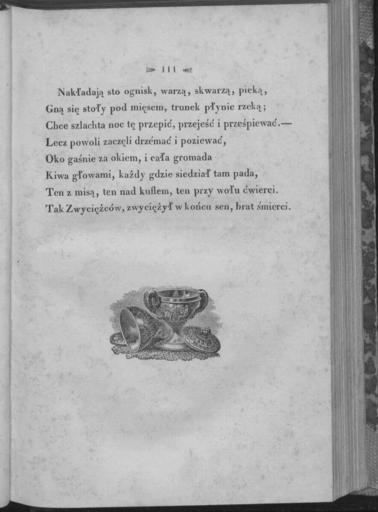 111
Nakładają sto ognisk, warzą, skwarzą, pieką,
Gną się stoły pod mięsem, trunek płynie rzeką;
Chce szlachta noc tę przepić, przejeść i prześpiewać.—
Lecz powoli zaczęli drzémać i poziewać,
Oko gaśnie za okiem, i cała gromada
Kiwa głowami, każdy gdzie siedział tam pada,
Ten z misą, ten nad kuflem, ten przy wołu ćwierci.
Tak Zwyciężców, zwyciężył w końcu sen, brat śmierci.